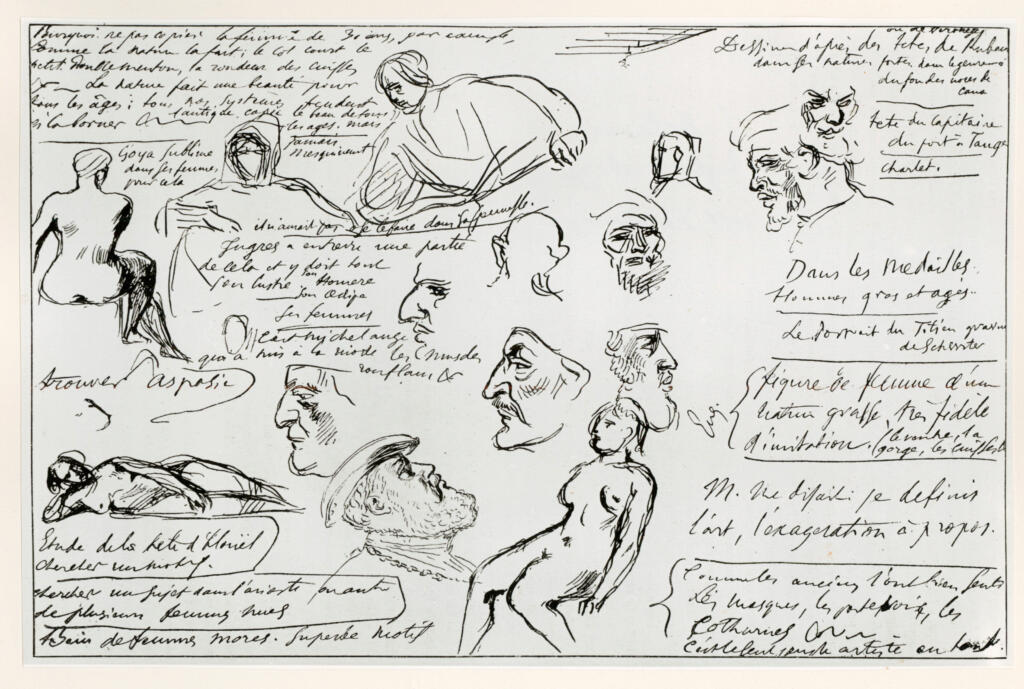 Pourquoi ne pas copier la femme de 30 ans, par exemple,
comme la nature la fait; le col court le
petit double menton, la rondeur des cuisses
&c— La nature fait une beauté pour
tous les âges; tous nos systèmes tendent
à la borner l'antique, copie le beau de tous
les ages. mais
jamais
mesquinement
Goya sublime
dans ses femmes
pour cela
il n'aimait pas
Ingres a entrevu une partie
de cela et y doit tout
son lustre son Homere
son Œdipe
ses femmes
C'est michel ange
qui a mis à la mode les muscles
ronflans &c
trouver Aspasie
Etude de la tete d'
chercher un motif.
chercher un sujet dans l'arioste ou autre
de plusieurs femmes nues
Bain de femmes mores. Superbe motif
ou de Veronese
Dessiner d'après des tetes de Rubens
dans ses natures fortes
du fond des noces de
Cana
tete du capitaine
du port à Tanger
Charlet.
Dans les Medailles.
Hommes gros et agés.
Le Portrait du Titien gravure
de Schwiter
figure de femme d'une
nature grasse, très fidèle
d'imitation. (le ventre, la
gorge, les cuisses &
M. me disait: je definis
l'art, l'exageration à propos.
Comme les anciens l'ont bien senti
Les masques, les porte voix, les
Cothurnes
C'est le seul artiste